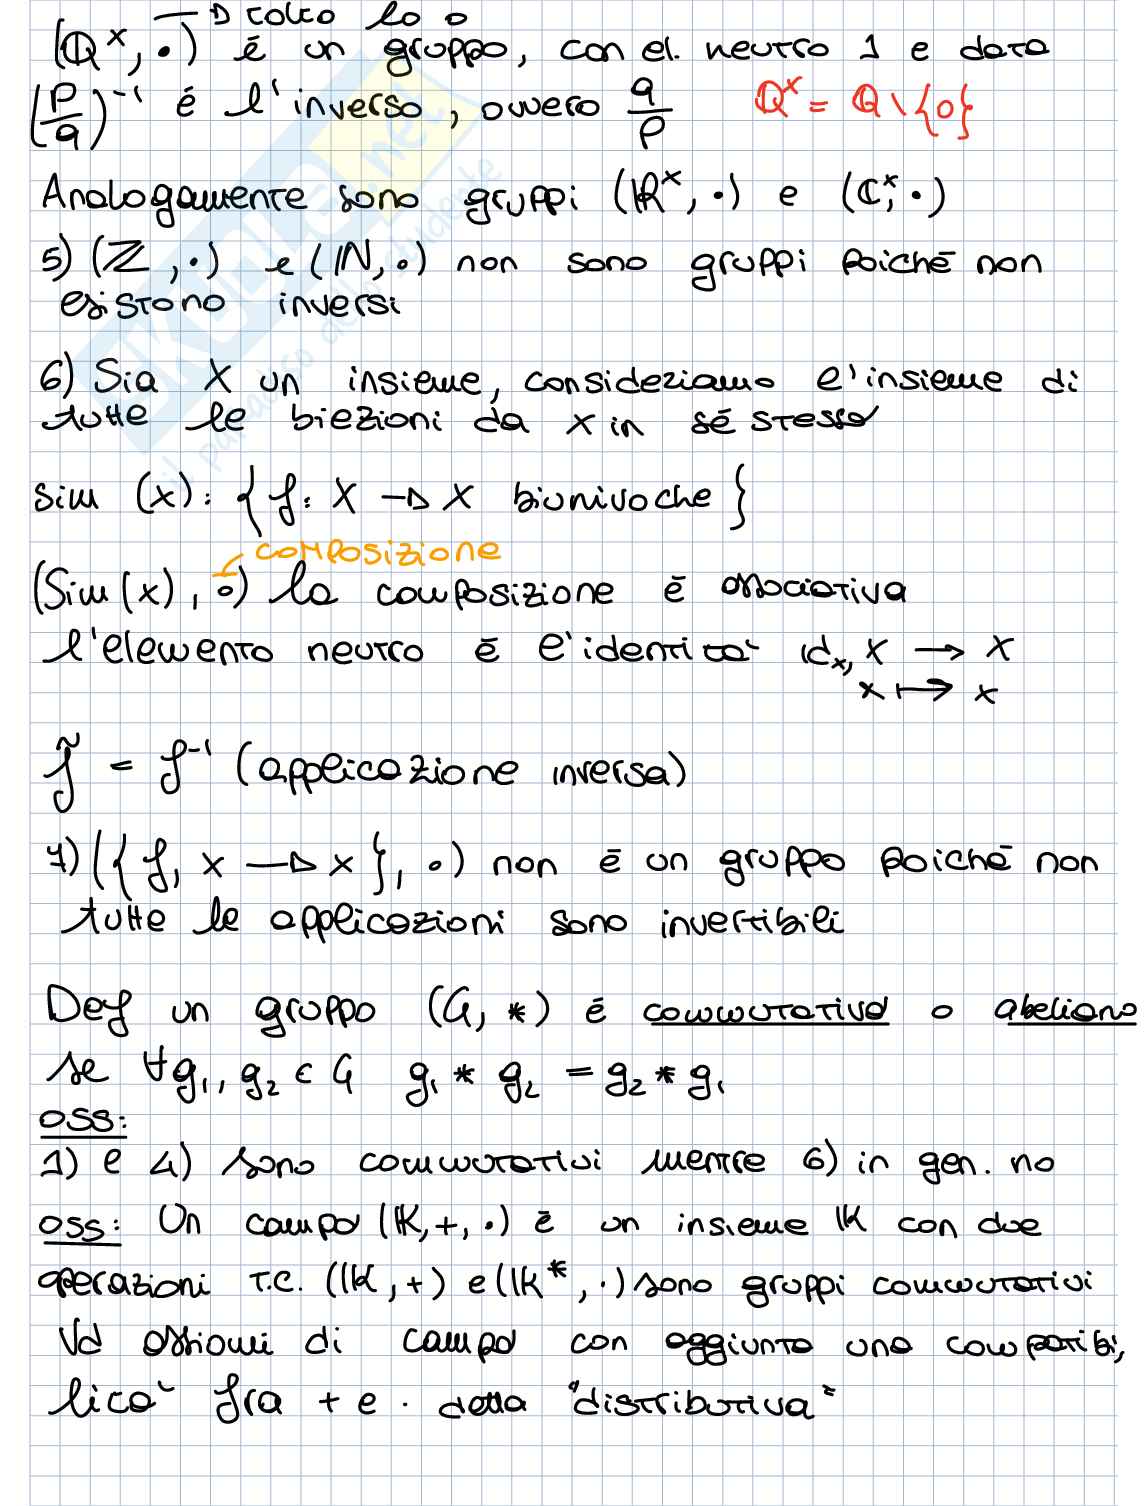 → tolto lo 0
(ℚˣ, •) è un gruppo, con el. neutro 1 e dato
(p/q)⁻¹ è l'inverso, ovvero q/p ℚˣ = ℚ \ {0}
Analogamente sono gruppi (ℝˣ, •) e (ℂˣ, •)
5) (ℤ, •) e (ℕ, •) non sono gruppi poiché non
esistono inversi
6) Sia X un insieme, consideriamo l'insieme di
tutte le biezioni da X in sé stesso
Sim (x): {f: X → X biunivoche}
composizione
(Sim(x), ∘) la composizione è associativa
l'elemento neutro è l'identità id_x, X → X
x ↦ x
f̃ = f⁻¹ (applicazione inversa)
7) ({f, X → X}, ∘) non è un gruppo poiché non
tutte le applicazioni sono invertibili
Def un gruppo (G, *) è commutativo o abeliano
se ∀g₁, g₂ ∈ G g₁ * g₂ = g₂ * g₁
OSS:
1) e 4) sono commutativi mentre 6) in gen. no
OSS: Un campo (𝕂, +, •) è un insieme 𝕂 con due
operazioni T.C. (𝕂, +) e (𝕂*, •) sono gruppi commutativi
Vd assiomi di campo con aggiunta una compatibi,
lità fra + e • detta "distributiva"
SKUOLA.net
il paradiso dello studente